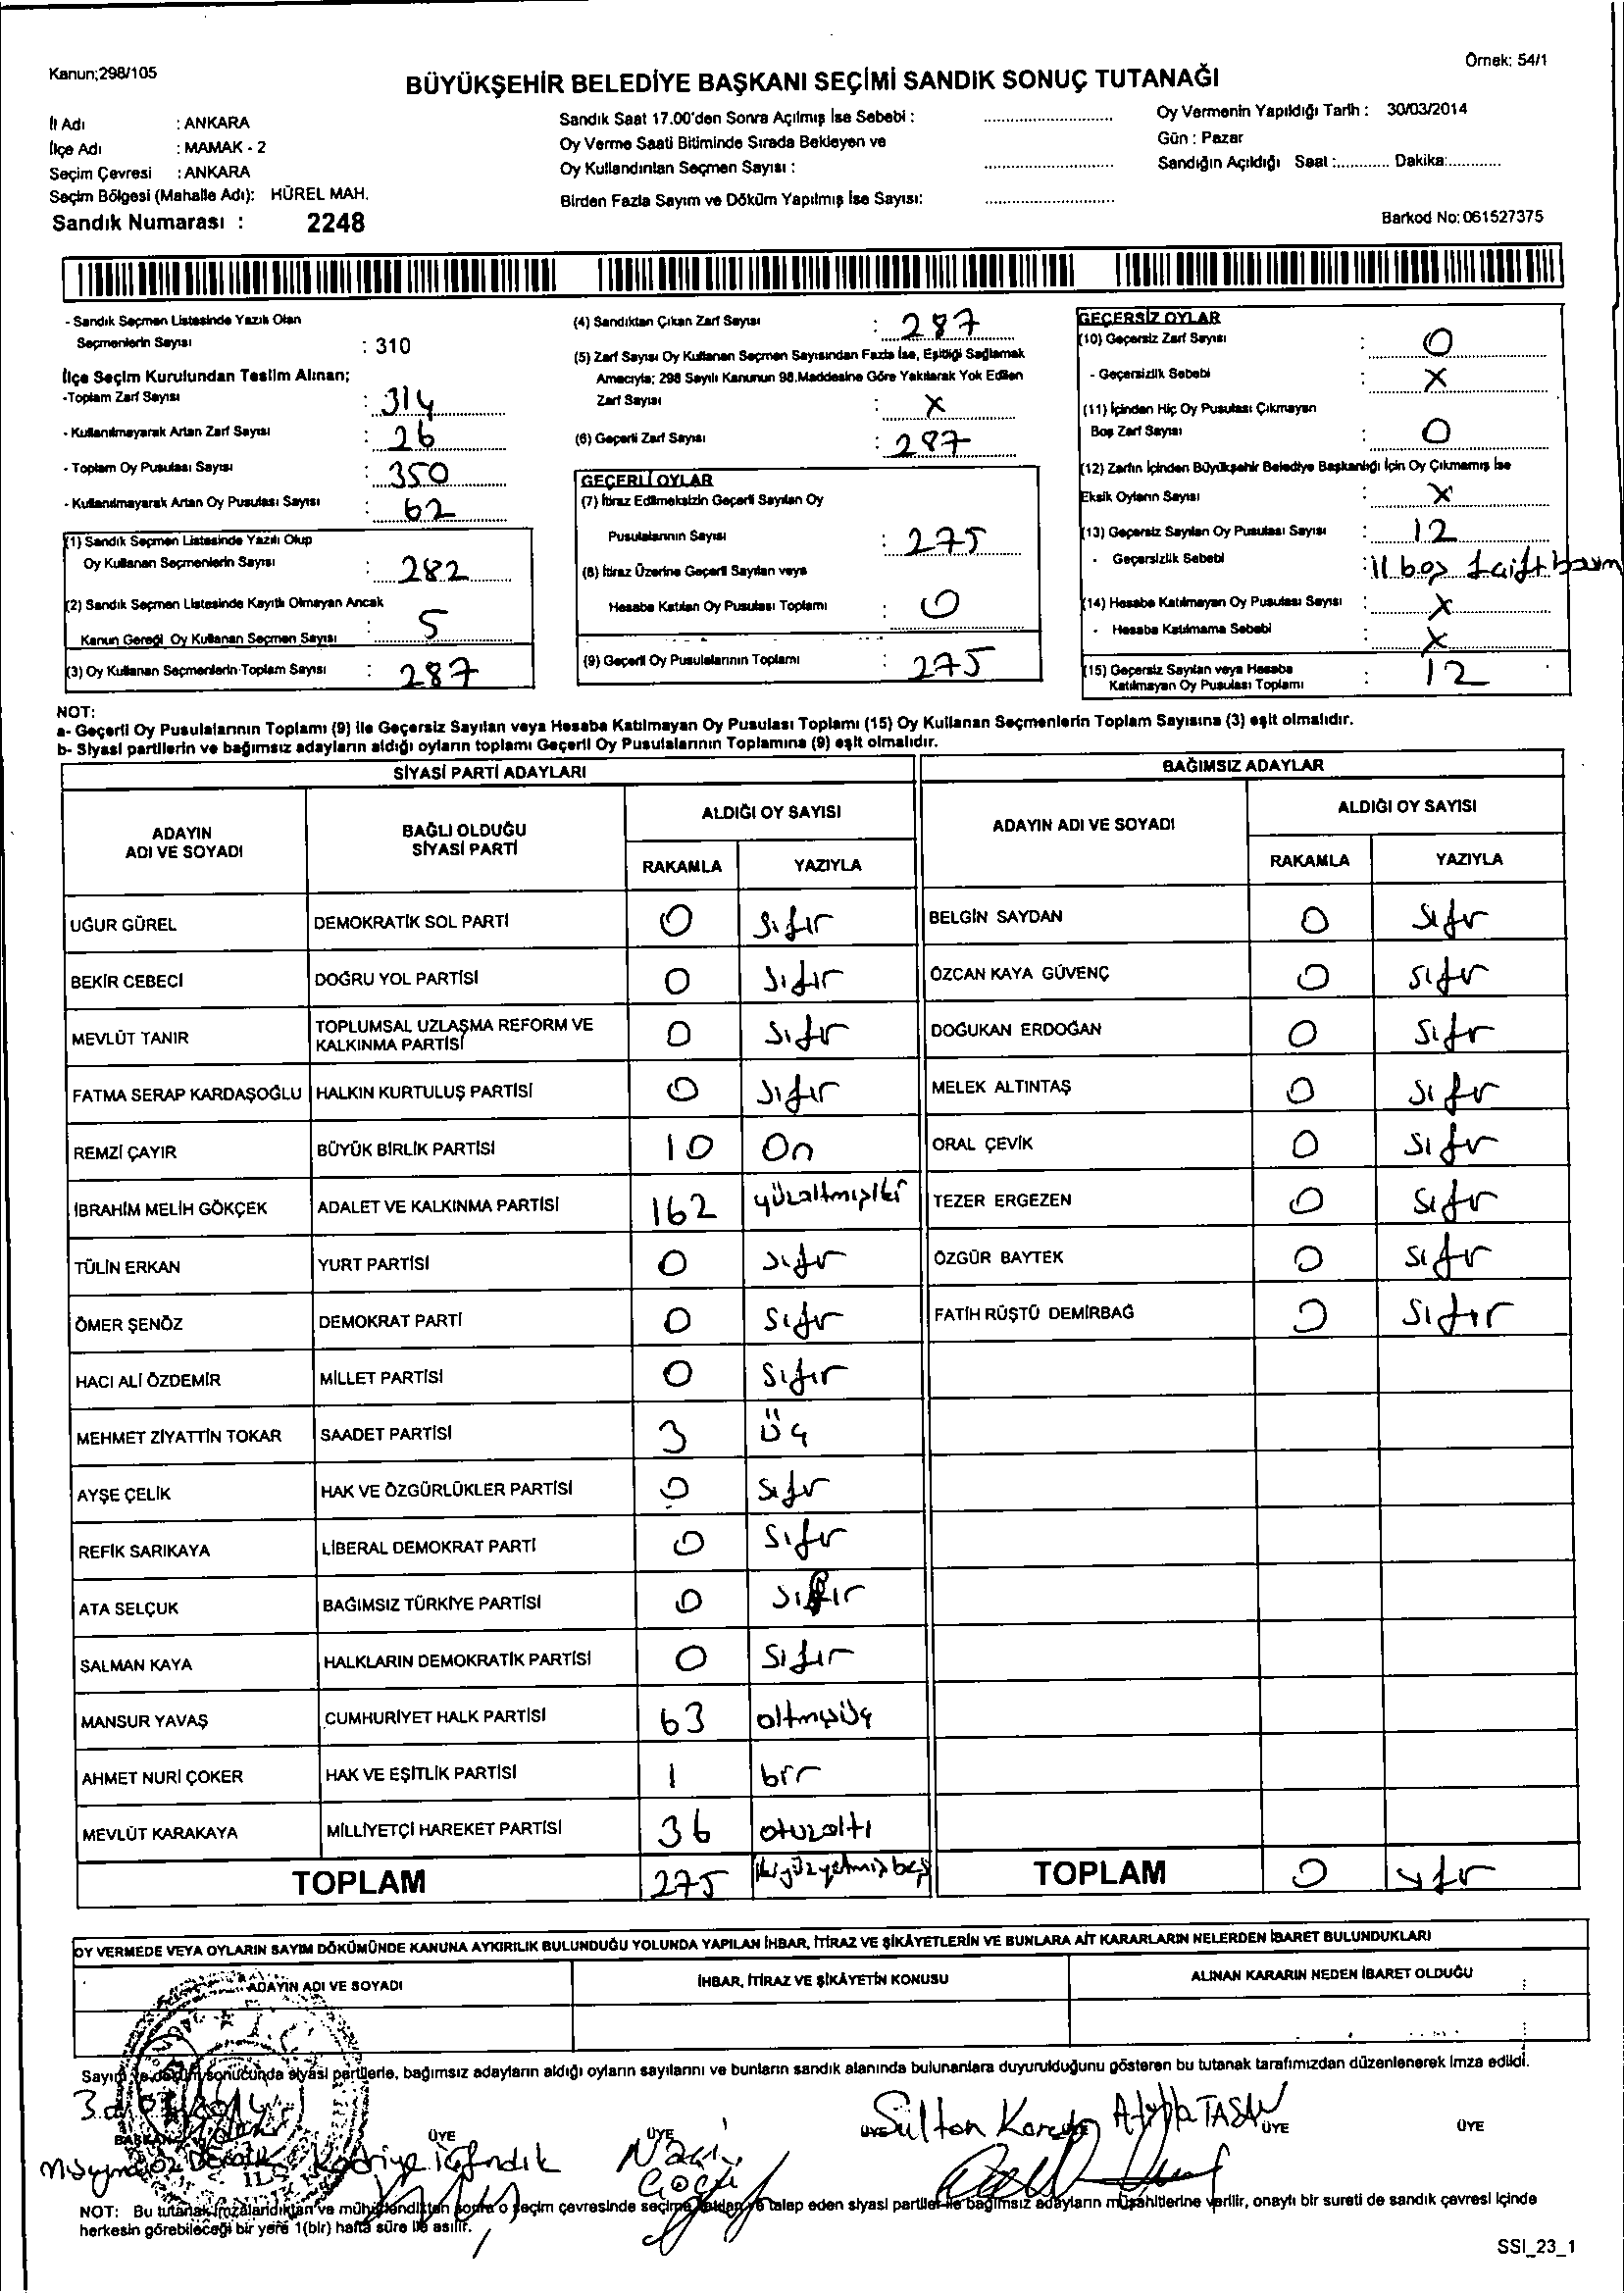 Kanun;298/105
Örnek: 54/1
BÜYÜKŞEHİR BELEDİYE BAŞKANI SEÇİMİ SANDIK SONUÇ TUTANAĞI
İl Adı : ANKARA
İlçe Adı : MAMAK - 2
Seçim Çevresi : ANKARA
Seçim Bölgesi (Mahalle Adı): HÜREL MAH.
Sandık Numarası : 2248
Sandık Saat 17.00'den Sonra Açılmış İse Sebebi :
Oy Verme Saati Bitiminde Sırada Bekleyen ve
Oy Kullandırılan Seçmen Sayısı :
Birden Fazla Sayım ve Döküm Yapılmış İse Sayısı:
Oy Vermenin Yapıldığı Tarih : 30/03/2014
Gün : Pazar
Sandığın Açıldığı Saat :............ Dakika:............
Barkod No: 061527375
- Sandık Seçmen Listesinde Yazılı Olan
Seçmenlerin Sayısı : 310
İlçe Seçim Kurulundan Teslim Alınan;
-Toplam Zarf Sayısı : 314
- Kullanılmayarak Artan Zarf Sayısı : 26
- Toplam Oy Pusulası Sayısı : 350
- Kullanılmayarak Artan Oy Pusulası Sayısı : 62
(1) Sandık Seçmen Listesinde Yazılı Olup
Oy Kullanan Seçmenlerin Sayısı : 282
(2) Sandık Seçmen Listesinde Kayıtlı Olmayan Ancak
Kanun Gereği Oy Kullanan Seçmen Sayısı : 5
(3) Oy Kullanan Seçmenlerin Toplam Sayısı : 287
(4) Sandıktan Çıkan Zarf Sayısı : 287
(5) Zarf Sayısı Oy Kullanan Seçmen Sayısından Fazla İse, Eşitliği Sağlamak
Amacıyla; 298 Sayılı Kanunun 98.Maddesine Göre Yakılarak Yok Edilen
Zarf Sayısı : X
(6) Geçerli Zarf Sayısı : 287
GEÇERLİ OYLAR
(7) İtiraz Edilmeksizin Geçerli Sayılan Oy
Pusulalarının Sayısı : 275
(8) İtiraz Üzerine Geçerli Sayılan veya
Hesaba Katılan Oy Pusulası Toplamı : 0
(9) Geçerli Oy Pusulalarının Toplamı : 275
GEÇERSİZ OYLAR
(10) Geçersiz Zarf Sayısı : 0
- Geçersizlik Sebebi : X
(11) İçinden Hiç Oy Pusulası Çıkmayan
Boş Zarf Sayısı : 0
(12) Zarfın İçinden Büyükşehir Belediye Başkanlığı İçin Oy Çıkmamış İse
Eksik Oyların Sayısı : X
(13) Geçersiz Sayılan Oy Pusulası Sayısı : 12
- Geçersizlik Sebebi : 11 boş 1 çift basım
(14) Hesaba Katılmayan Oy Pusulası Sayısı : X
- Hesaba Katılmama Sebebi : X
(15) Geçersiz Sayılan veya Hesaba
Katılmayan Oy Pusulası Toplamı : 12
NOT:
a- Geçerli Oy Pusulalarının Toplamı (9) ile Geçersiz Sayılan veya Hesaba Katılmayan Oy Pusulası Toplamı (15) Oy Kullanan Seçmenlerin Toplam Sayısına (3) eşit olmalıdır.
b- Siyasi partilerin ve bağımsız adayların aldığı oyların toplamı Geçerli Oy Pusulalarının Toplamına (9) eşit olmalıdır.
SİYASİ PARTİ ADAYLARI
ADAYIN ADI VE SOYADI BAĞLI OLDUĞU SİYASİ PARTİ ALDIĞI OY SAYISI
RAKAMLA YAZIYLA
UĞUR GÜREL DEMOKRATİK SOL PARTİ 0 Sıfır
BEKİR CEBECİ DOĞRU YOL PARTİSİ 0 Sıfır
MEVLÜT TANIR TOPLUMSAL UZLAŞMA REFORM VE KALKINMA PARTİSİ 0 Sıfır
FATMA SERAP KARDAŞOĞLU HALKIN KURTULUŞ PARTİSİ 0 Sıfır
REMZİ ÇAYIR BÜYÜK BİRLİK PARTİSİ 10 On
İBRAHİM MELİH GÖKÇEK ADALET VE KALKINMA PARTİSİ 162 yüzaltmışiki
TÜLİN ERKAN YURT PARTİSİ 0 Sıfır
ÖMER ŞENÖZ DEMOKRAT PARTİ 0 Sıfır
HACI ALİ ÖZDEMİR MİLLET PARTİSİ 0 Sıfır
MEHMET ZİYATTİN TOKAR SAADET PARTİSİ 3 Üç
AYŞE ÇELİK HAK VE ÖZGÜRLÜKLER PARTİSİ 0 Sıfır
REFİK SARIKAYA LİBERAL DEMOKRAT PARTİ 0 Sıfır
ATA SELÇUK BAĞIMSIZ TÜRKİYE PARTİSİ 0 Sıfır
SALMAN KAYA HALKLARIN DEMOKRATİK PARTİSİ 0 Sıfır
MANSUR YAVAŞ CUMHURİYET HALK PARTİSİ 63 altmışüç
AHMET NURİ ÇOKER HAK VE EŞİTLİK PARTİSİ 1 bir
MEVLÜT KARAKAYA MİLLİYETÇİ HAREKET PARTİSİ 36 otuzaltı
TOPLAM 275 ikiyüzyetmişbeş
BAĞIMSIZ ADAYLAR
ADAYIN ADI VE SOYADI ALDIĞI OY SAYISI
RAKAMLA YAZIYLA
BELGİN SAYDAN 0 Sıfır
ÖZCAN KAYA GÜVENÇ 0 Sıfır
DOĞUKAN ERDOĞAN 0 Sıfır
MELEK ALTINTAŞ 0 Sıfır
ORAL ÇEVİK 0 Sıfır
TEZER ERGEZEN 0 Sıfır
ÖZGÜR BAYTEK 0 Sıfır
FATİH RÜŞTÜ DEMİRBAĞ 0 Sıfır
TOPLAM 0 Sıfır
OY VERMEDE VEYA OYLARIN SAYIM DÖKÜMÜNDE KANUNA AYKIRILIK BULUNDUĞU YOLUNDA YAPILAN İHBAR, İTİRAZ VE ŞİKÂYETLERİN VE BUNLARA AİT KARARLARIN NELERDEN İBARET BULUNDUKLARI
ADAYIN ADI VE SOYADI İHBAR, İTİRAZ VE ŞİKÂYETİN KONUSU ALINAN KARARIN NEDEN İBARET OLDUĞU
Sayım ve döküm sonucunda siyasi partilerle, bağımsız adayların aldığı oyların sayılarını ve bunların sandık alanında bulunanlara duyurulduğunu gösteren bu tutanak tarafımızdan düzenlenerek imza edildi.
BAŞKAN ÜYE ÜYE ÜYE ÜYE ÜYE
Kadriye Naci Sultan
NOT: Bu tutanak imzalandıktan ve mühürlendikten sonra o seçim çevresinde seçime katılan ve talep eden siyasi partiler ile bağımsız adayların müşahitlerine verilir, onaylı bir sureti de sandık çevresi içinde
herkesin görebileceği bir yere 1(bir) hafta süre ile asılır.
SSI_23_1